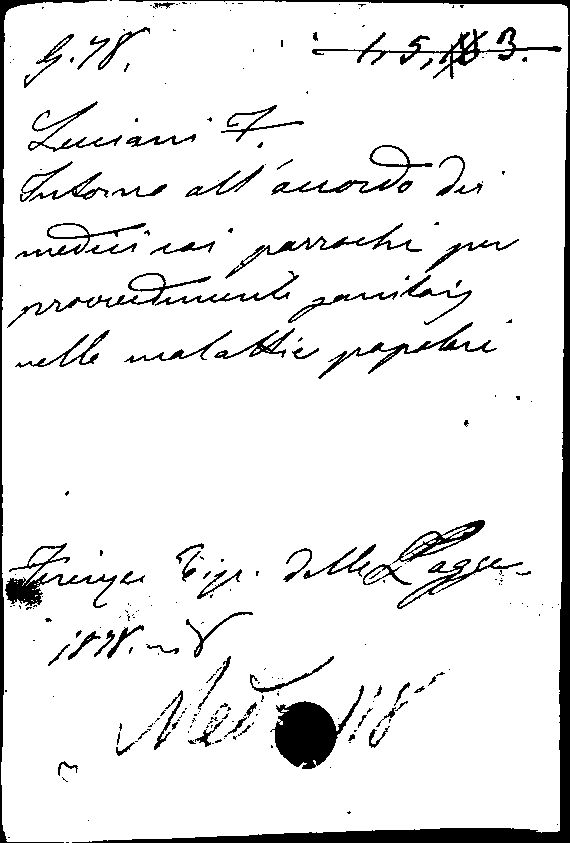 G. 78.
1, 5, 3.
Luciani F.
Intorno all'accordo dei
medici coi parrochi per
provvedimenti sanitarj
nelle malattie popolari
Firenze Tipr. delle Logge
1878. in 8
Med 118